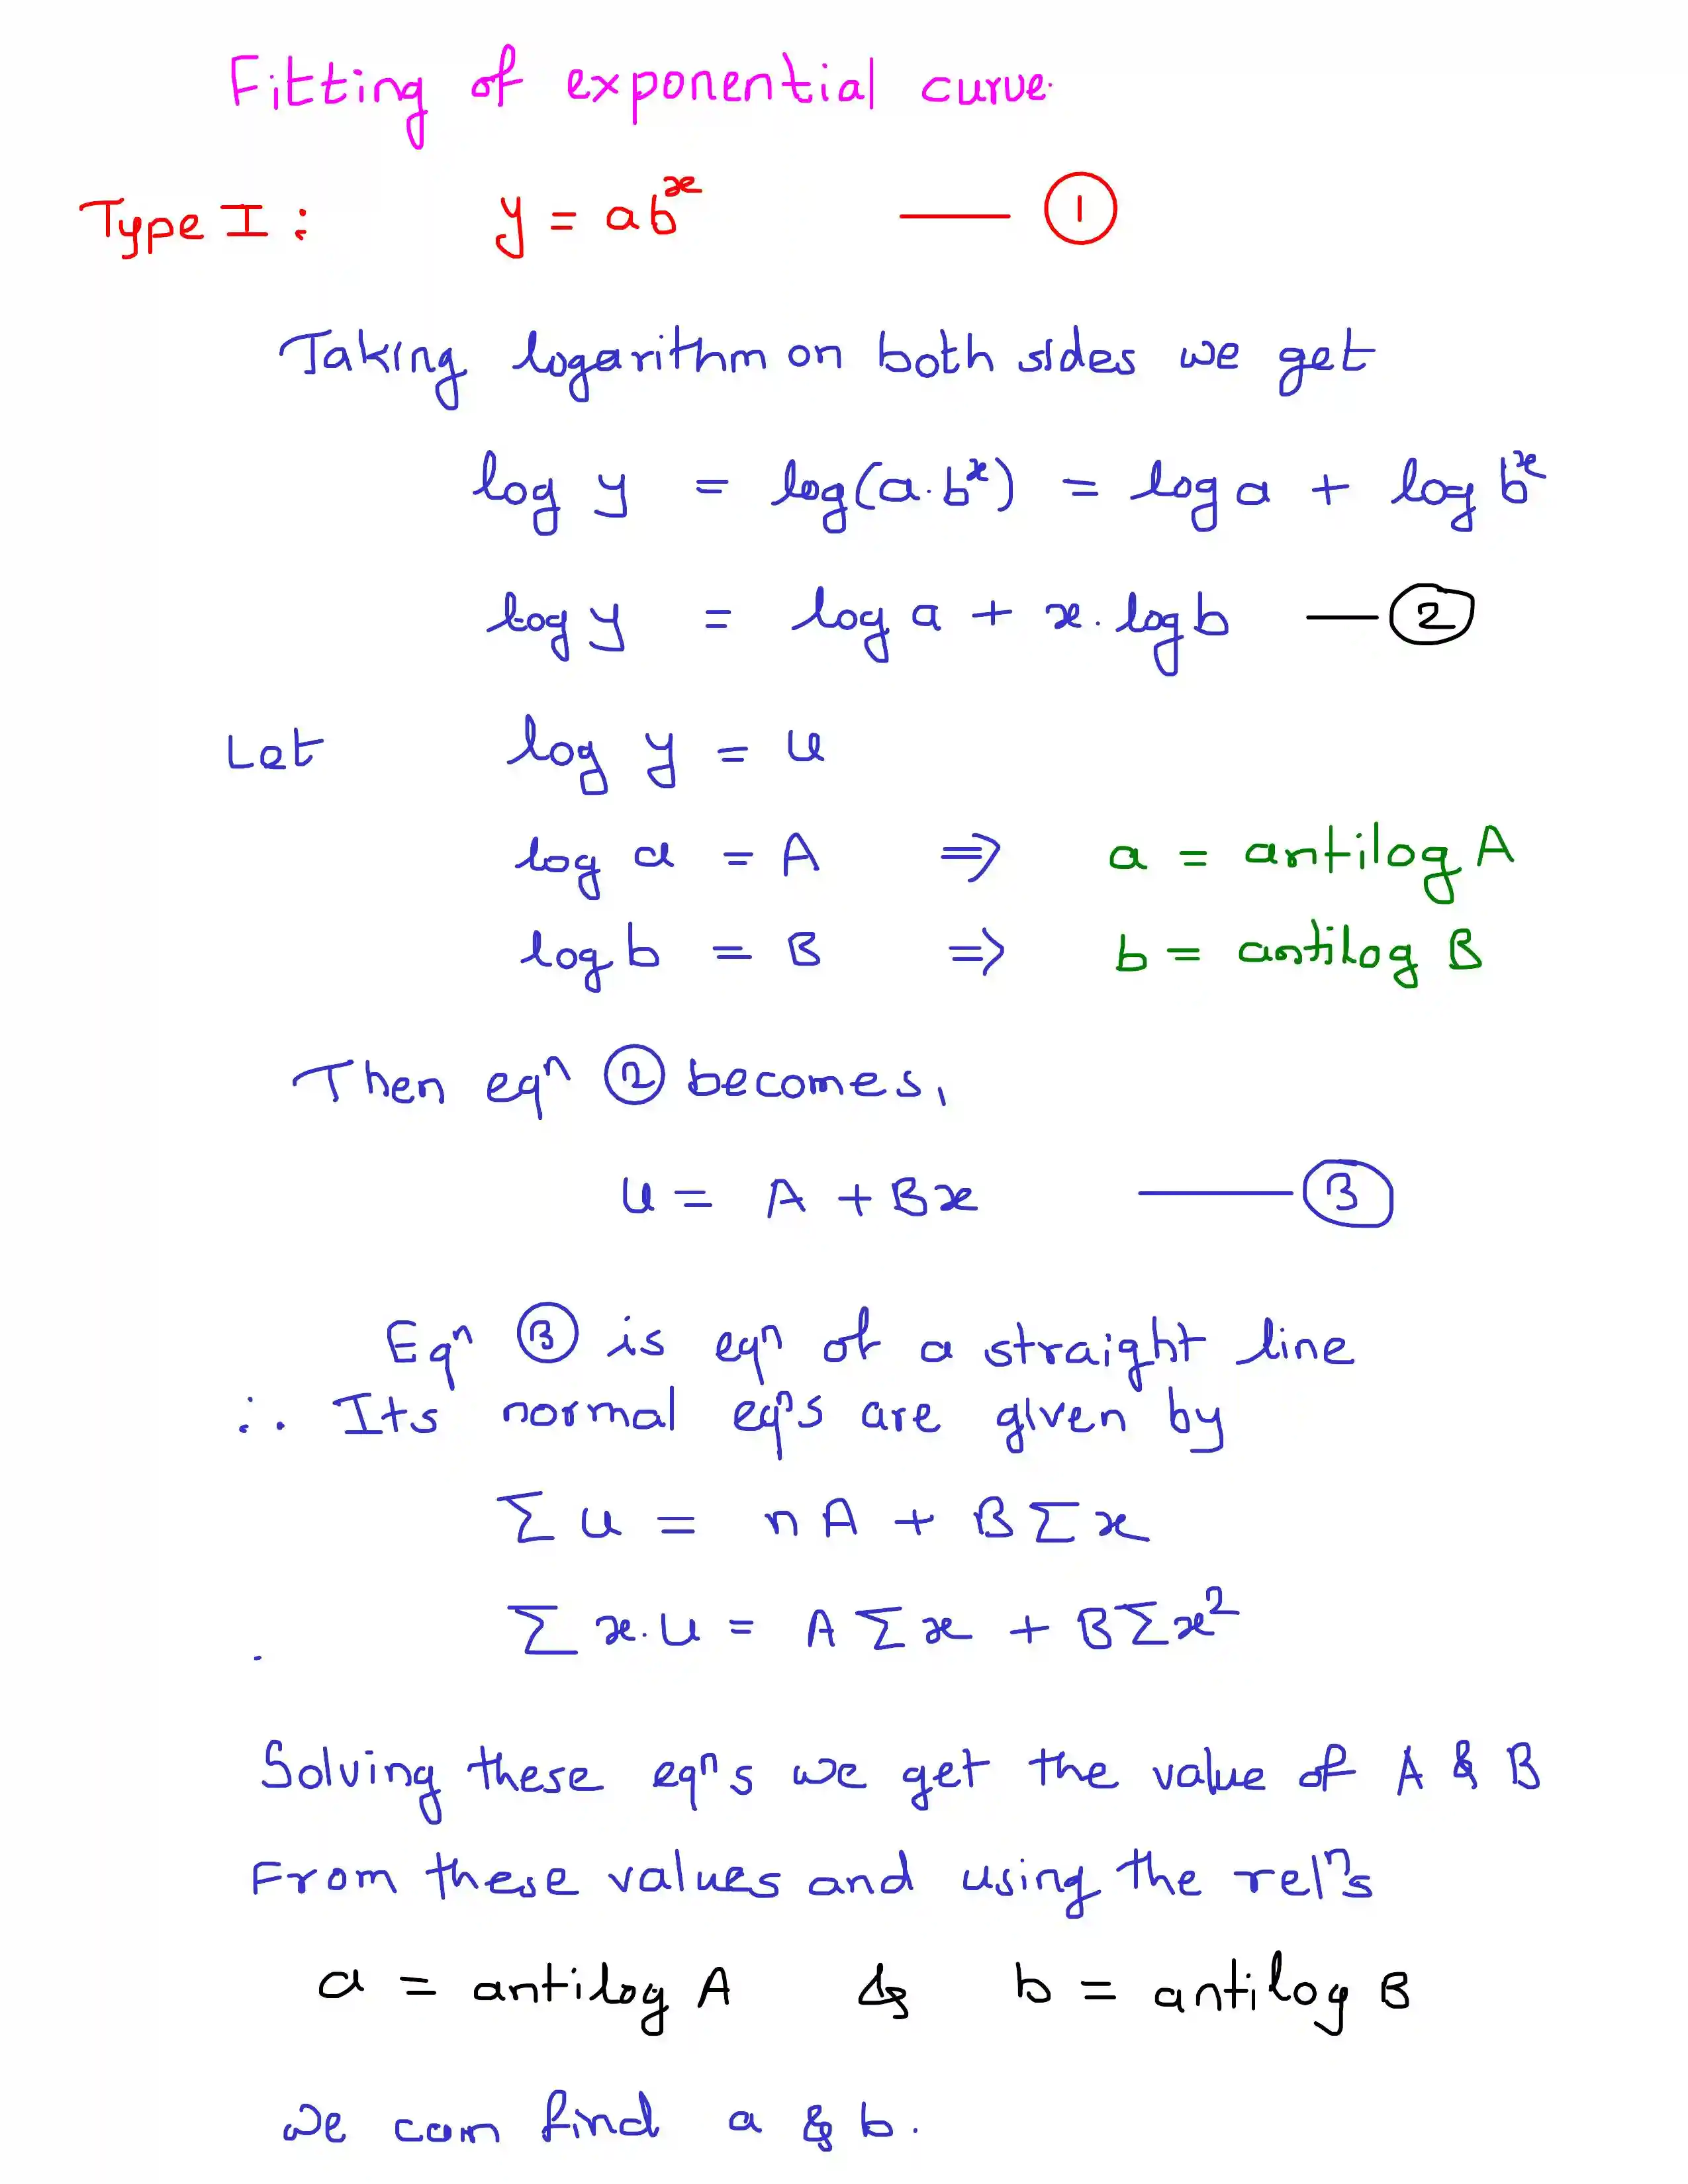 Fitting of exponential curve.
Type I : y = ab^x —— ①
Taking logarithm on both sides we get
log y = log(a·b^x) = log a + log b^x
log y = log a + x·log b — ②
Let log y = u
log a = A ⇒ a = antilog A
log b = B ⇒ b = antilog B
Then eqⁿ ② becomes,
u = A + Bx —— ③
Eqⁿ ③ is eqⁿ of a straight line
∴ Its normal eqⁿs are given by
Σu = nA + BΣx
Σx·u = AΣx + BΣx²
Solving these eqⁿs we get the value of A & B
From these values and using the relⁿs
a = antilog A & b = antilog B
we can find a & b.